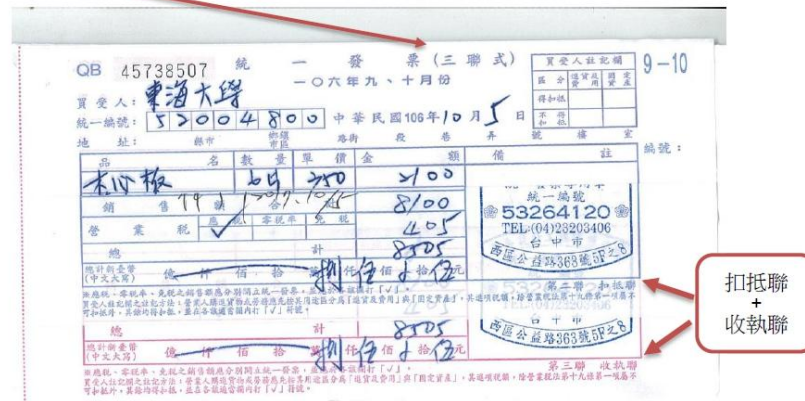 QB 45738507 統一發票(三聯式) 買受人註記欄 9-10
一○六年九、十月份 區分 進貨及費用 固定資產
買受人: 東海大學 得扣抵
統一編號: 52004800 中華民國106年10月5日 不得扣抵
地址: 縣市 鄉鎮市區 路街 段 巷 弄 號 樓 室
編號:
品名 數量 單價 金額 備註
木心板 6片 350
銷售額合計 8100
營業稅 應稅 ✓ 零稅率 免稅 405
總計 8505
總計新臺幣(中文大寫) 億 仟 佰 拾 萬 捌仟伍佰 拾伍元
統一編號
53264120
TEL:(04)23203406
台中市
西區公益路363號5F之8
第二聯 扣抵聯
※應稅、零稅率、免稅之銷售額應分別開立統一發票,並應於各該欄打「✓」。
買受人註記欄之註記方法:營業人購進貨物或勞務應先按其用途區分為「進貨及費用」與「固定資產」,其進項稅額,除營業稅法第十九條第一項屬不可扣抵外,其餘均得扣抵,並在各該適當欄內打「✓」符號。
總計 8505
總計新臺幣(中文大寫) 億 仟 佰 拾 萬 捌仟伍佰 拾伍元
台中市
西區公益路363號5F之8
第三聯 收執聯
※應稅、零稅率、免稅之銷售額應分別開立統一發票,並應於各該欄打「✓」。
買受人註記欄之註記方法:營業人購進貨物或勞務應先按其用途區分為「進貨及費用」與「固定資產」,其進項稅額,除營業稅法第十九條第一項屬不可扣抵外,其餘均得扣抵,並在各該適當欄內打「✓」符號。
扣抵聯
+
收執聯